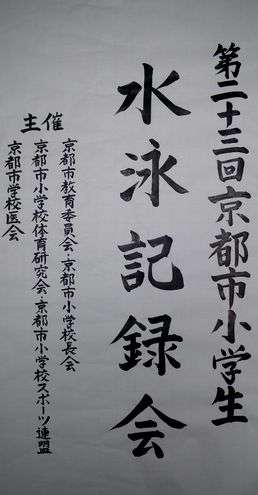 第二十三回京都市小学生
水泳記録会
主催
京都市教育委員会・京都市小学校長会
京都市小学校体育研究会・京都市小学校スポーツ連盟
京都市学校医会